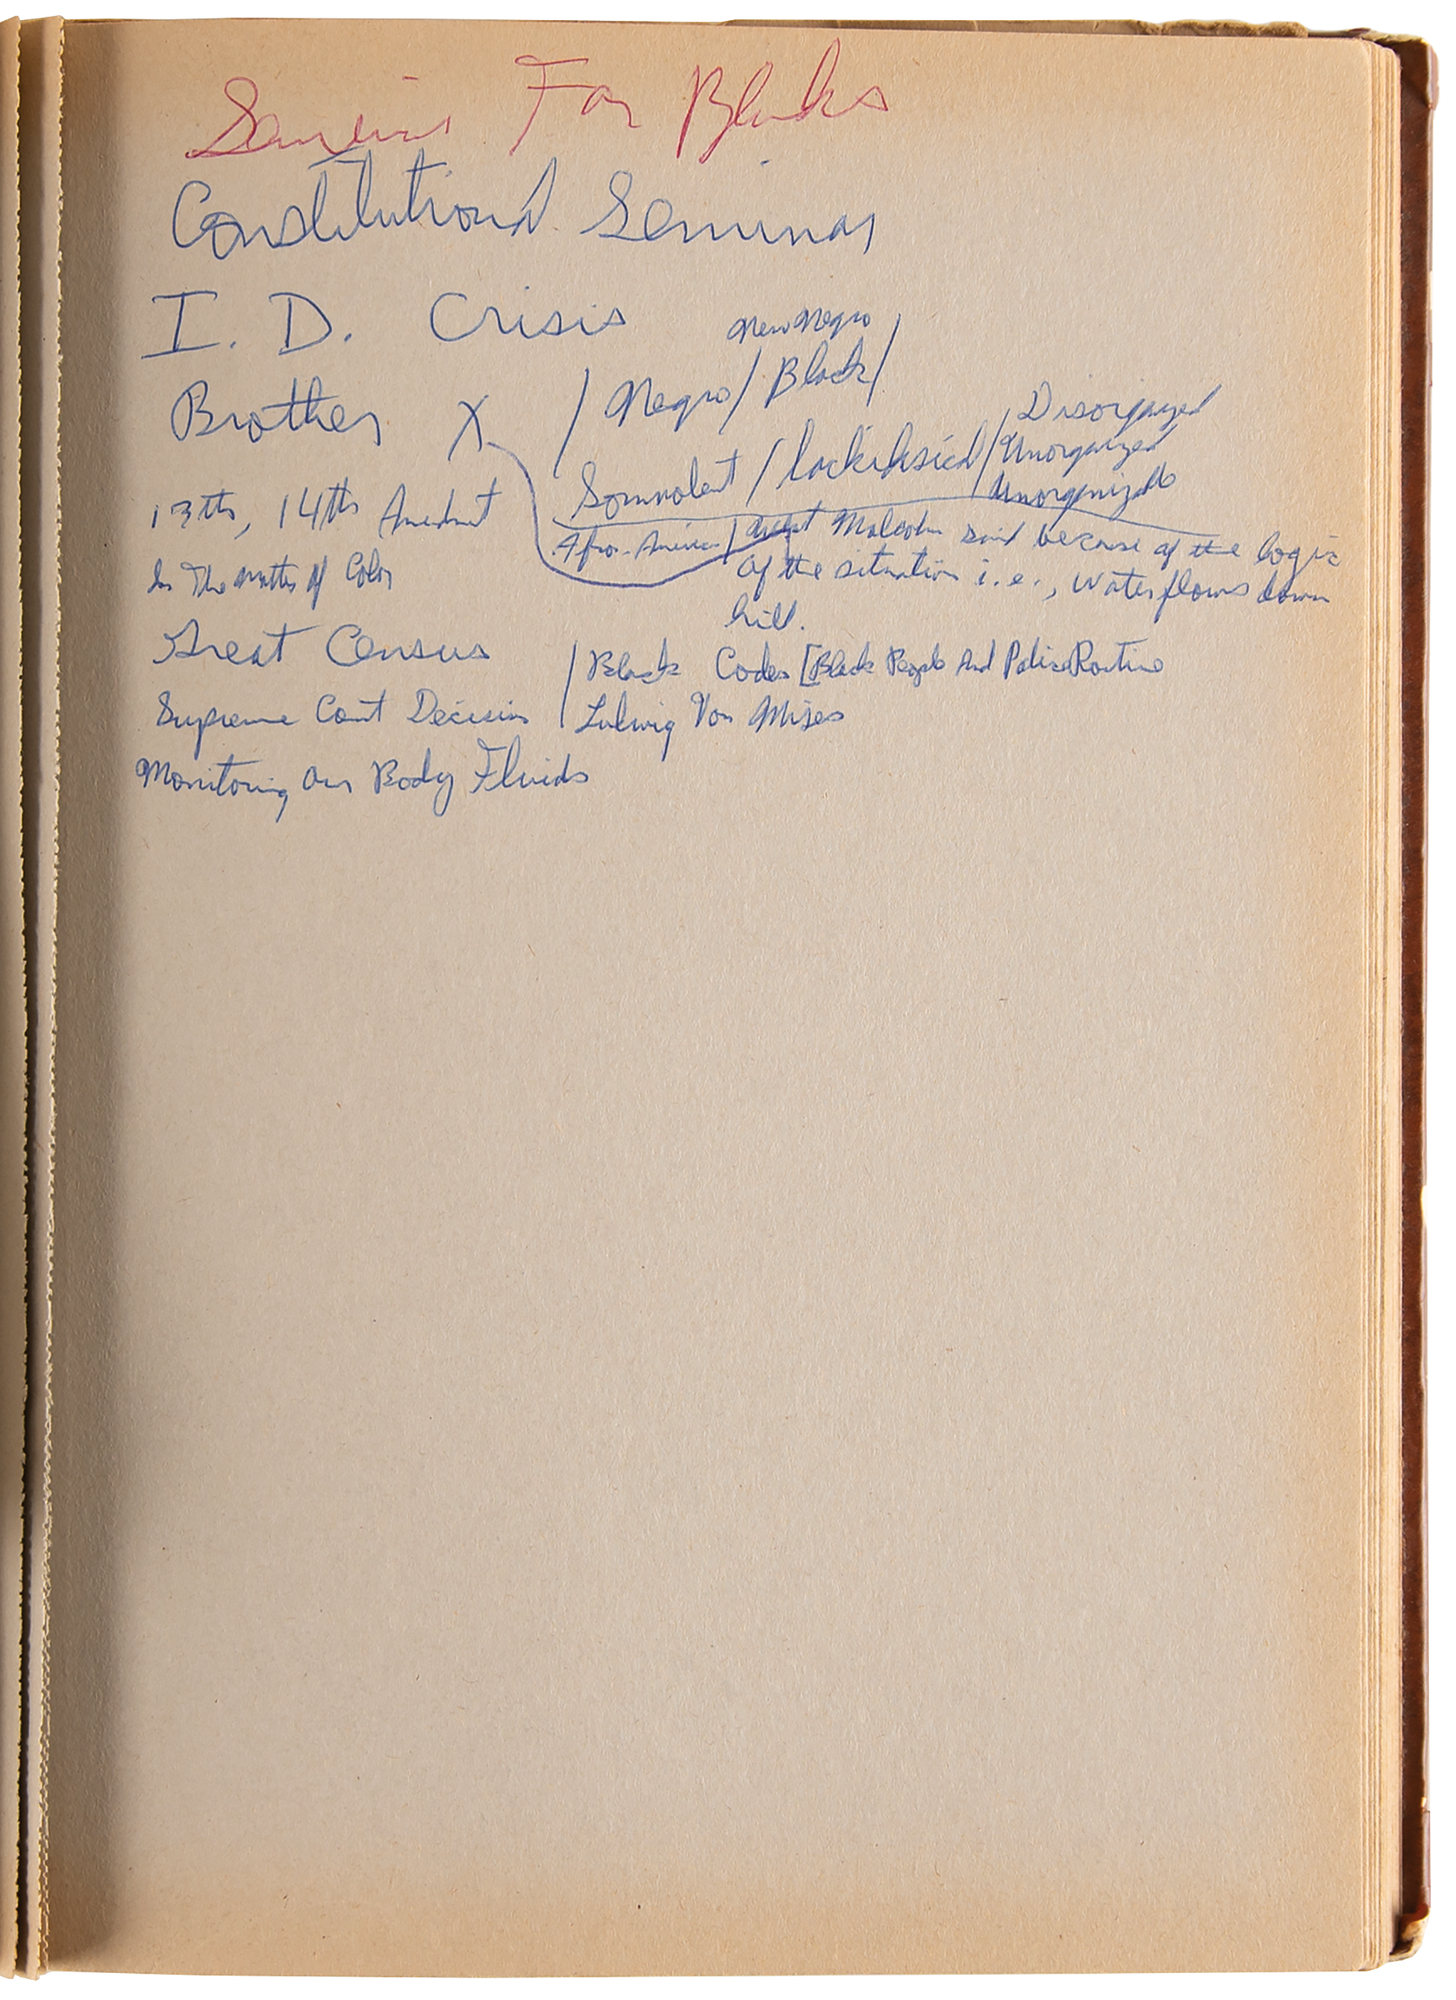 Seminar For Blacks
Constitutional Seminar
I. D. Crisis
New Negro
Brother X / Negro / Black /
Somnolent / lackidasical / Disorganized
Unorganized
Unorganizable
13th, 14th Amendment
Afro-American / Malcolm said because of the logic
of the situation i.e., water flows down
hill.
In The Matter Of Color
Great Census / Black Codes [Black People And Police Routine
Supreme Court Decisions / Ludwig Von Mises
Monitoring Our Body Fluids